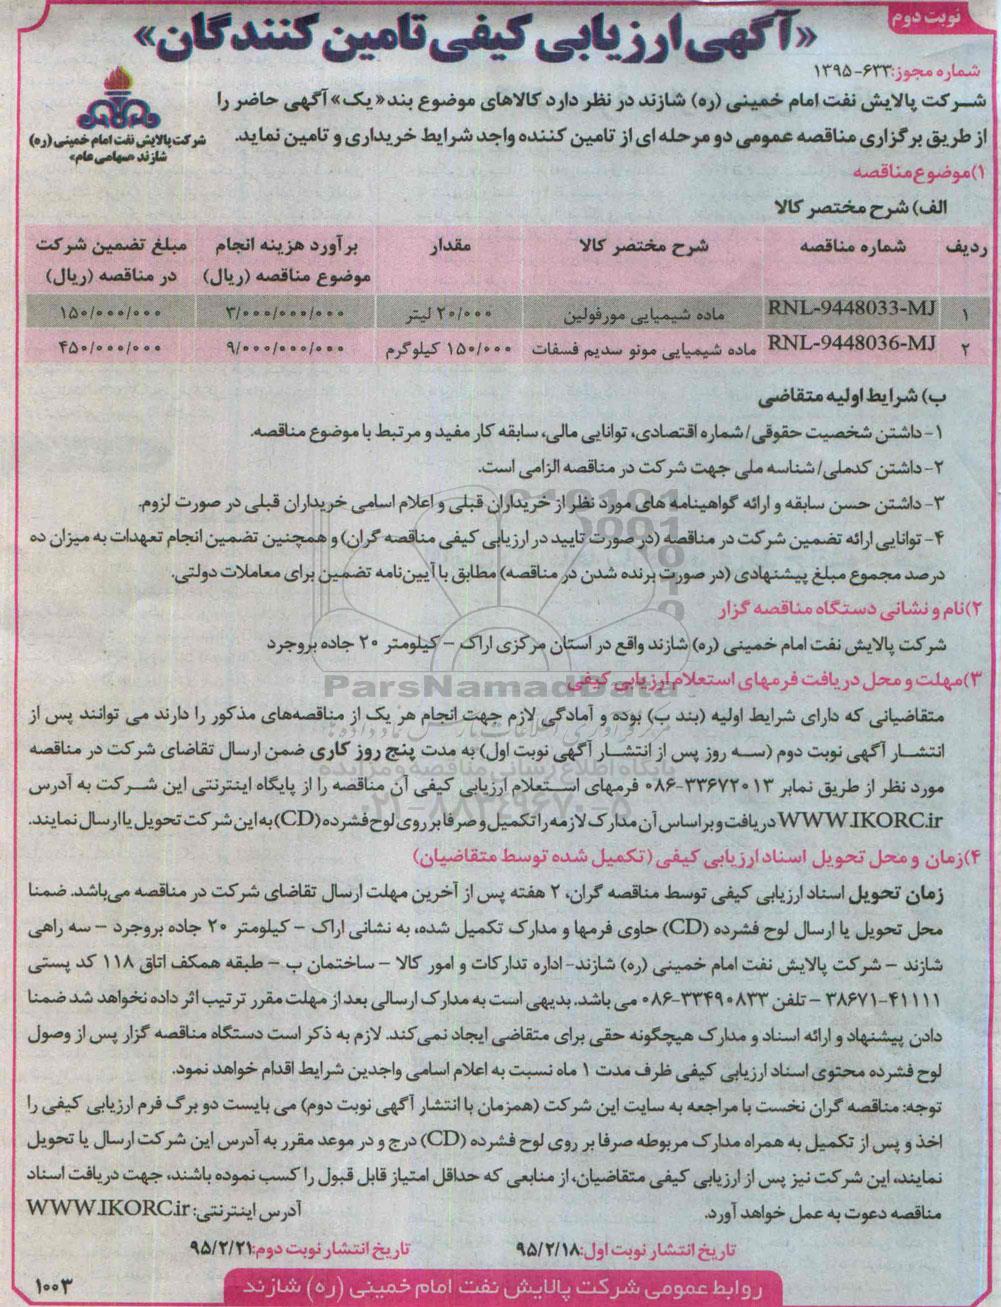 نوبت دوم
«آگهی ارزیابی کیفی تامین کنندگان»
شماره مجوز:۶۳۳-۱۳۹۵
شرکت پالایش نفت امام خمینی (ره)
شازند «سهامی عام»
شرکت پالایش نفت امام خمینی (ره) شازند در نظر دارد کالاهای موضوع بند «یک» آگهی حاضر را
از طریق برگزاری مناقصه عمومی دو مرحله ای از تامین کننده واجد شرایط خریداری و تامین نماید.
۱)موضوع مناقصه
الف) شرح مختصر کالا
ردیف شماره مناقصه شرح مختصر کالا مقدار برآورد هزینه انجام موضوع مناقصه (ریال) مبلغ تضمین شرکت در مناقصه (ریال)
۱ RNL-9448033-MJ ماده شیمیایی مورفولین ۲۰/۰۰۰ لیتر ۳/۰۰۰/۰۰۰/۰۰۰ ۱۵۰/۰۰۰/۰۰۰
۲ RNL-9448036-MJ ماده شیمیایی مونو سدیم فسفات ۱۵۰/۰۰۰ کیلوگرم ۹/۰۰۰/۰۰۰/۰۰۰ ۴۵۰/۰۰۰/۰۰۰
ب) شرایط اولیه متقاضی
۱- داشتن شخصیت حقوقی/ شماره اقتصادی، توانایی مالی، سابقه کار مفید و مرتبط با موضوع مناقصه.
۲- داشتن کدملی/ شناسه ملی جهت شرکت در مناقصه الزامی است.
۳- داشتن حسن سابقه و ارائه گواهینامه های مورد نظر از خریداران قبلی و اعلام اسامی خریداران قبلی در صورت لزوم.
۴- توانایی ارائه تضمین شرکت در مناقصه (در صورت تایید در ارزیابی کیفی مناقصه گران) و همچنین تضمین انجام تعهدات به میزان ده
درصد مجموع مبلغ پیشنهادی (در صورت برنده شدن در مناقصه) مطابق با آیین‌نامه تضمین برای معاملات دولتی.
۲)نام و نشانی دستگاه مناقصه گزار
شرکت پالایش نفت امام خمینی (ره) شازند واقع در استان مرکزی اراک - کیلومتر ۲۰ جاده بروجرد
ParsNamadData
۳)مهلت و محل دریافت فرمهای استعلام ارزیابی کیفی
متقاضیانی که دارای شرایط اولیه (بند ب) بوده و آمادگی لازم جهت انجام هر یک از مناقصه‌های مذکور را دارند می توانند پس از
انتشار آگهی نوبت دوم (سه روز پس از انتشار آگهی نوبت اول) به مدت پنج روز کاری ضمن ارسال تقاضای شرکت در مناقصه
پایگاه اطلاع رسانی مناقصه و مزایده
مورد نظر از طریق نمابر ۳۳۶۷۲۰۱۳-۰۸۶ فرمهای استعلام ارزیابی کیفی آن مناقصه را از پایگاه اینترنتی این شرکت به آدرس
۰۲۱-۸۸۳۴۹۶۷۰-۵
WWW.IKORC.ir دریافت و براساس آن مدارک لازمه را تکمیل و صرفا بر روی لوح فشرده (CD) به این شرکت تحویل یا ارسال نمایند.
۴)زمان و محل تحویل اسناد ارزیابی کیفی (تکمیل شده توسط متقاضیان)
زمان تحویل اسناد ارزیابی کیفی توسط مناقصه گران، ۲ هفته پس از آخرین مهلت ارسال تقاضای شرکت در مناقصه می‌باشد. ضمنا
محل تحویل یا ارسال لوح فشرده (CD) حاوی فرمها و مدارک تکمیل شده، به نشانی اراک - کیلومتر ۲۰ جاده بروجرد - سه راهی
شازند - شرکت پالایش نفت امام خمینی (ره) شازند- اداره تدارکات و امور کالا - ساختمان ب - طبقه همکف اتاق ۱۱۸ کد پستی
۴۱۱۱۱-۳۸۶۷۱ - تلفن ۳۳۴۹۰۸۳۳-۰۸۶ می باشد. بدیهی است به مدارک ارسالی بعد از مهلت مقرر ترتیب اثر داده نخواهد شد ضمنا
دادن پیشنهاد و ارائه اسناد و مدارک هیچگونه حقی برای متقاضی ایجاد نمی‌کند. لازم به ذکر است دستگاه مناقصه گزار پس از وصول
لوح فشرده محتوی اسناد ارزیابی کیفی ظرف مدت ۱ ماه نسبت به اعلام اسامی واجدین شرایط اقدام خواهد نمود.
توجه: مناقصه گران نخست با مراجعه به سایت این شرکت (همزمان با انتشار آگهی نوبت دوم) می بایست دو برگ فرم ارزیابی کیفی را
اخذ و پس از تکمیل به همراه مدارک مربوطه صرفا بر روی لوح فشرده (CD) درج و در موعد مقرر به آدرس این شرکت ارسال یا تحویل
نمایند، این شرکت نیز پس از ارزیابی کیفی متقاضیان، از منابعی که حداقل امتیاز قابل قبول را کسب نموده باشند، جهت دریافت اسناد
مناقصه دعوت به عمل خواهد آورد. آدرس اینترنتی: WWW.IKORC.ir
تاریخ انتشار نوبت اول:۹۵/۲/۱۸ تاریخ انتشار نوبت دوم:۹۵/۲/۲۱
روابط عمومی شرکت پالایش نفت امام خمینی (ره) شازند
۱۰۰۳